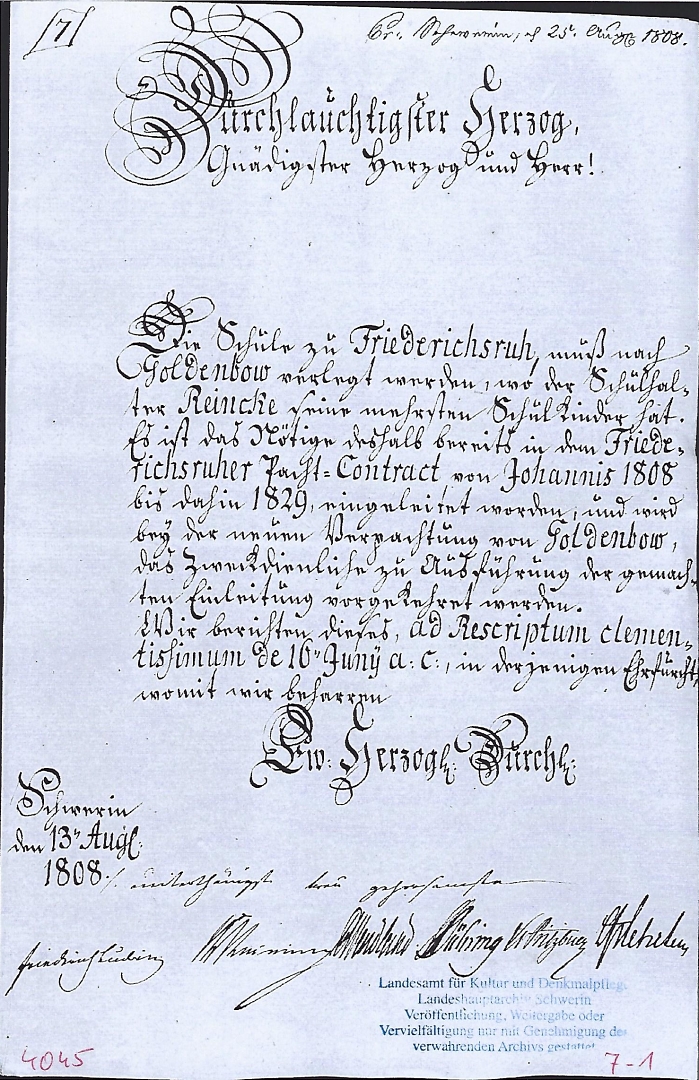 [7]
Pr. Schwerin, d 25t. Aug 1808.
Durchlauchtigster Herzog,
Gnädigster Herzog und Herr!
Die Schule zu Friederichsruh, muß nach
Goldenbow verlegt werden, wo der Schulhal-
ter Reincke seine mehrsten Schul Kinder hat.
Es ist das Nötige deshalb bereits in dem Friede-
richsruher Pacht-Contract von Johannis 1808
bis dahin 1829, eingeleitet worden, und wird
bey der neuen Verpachtung von Goldenbow,
das Zweckdienliche zu Ausführung der gemach-
ten Einleitung vorgekehret werden.
Wir berichten dieses, ad Rescriptum clemen-
tissimum de 16n Juny a: c:, in derjenigen Ehrfurcht,
womit wir beharren
Ew: Herzogl: Durchl:
Schwerin
den 13n Augl:
1808.
unterthänigst treu gehorsamste
Landesamt für Kultur und Denkmalpflege
Landeshauptarchiv Schwerin
Veröffentlichung, Weitergabe oder
Vervielfältigung nur mit Genehmigung des
verwahrenden Archivs gestattet
4045
7-1